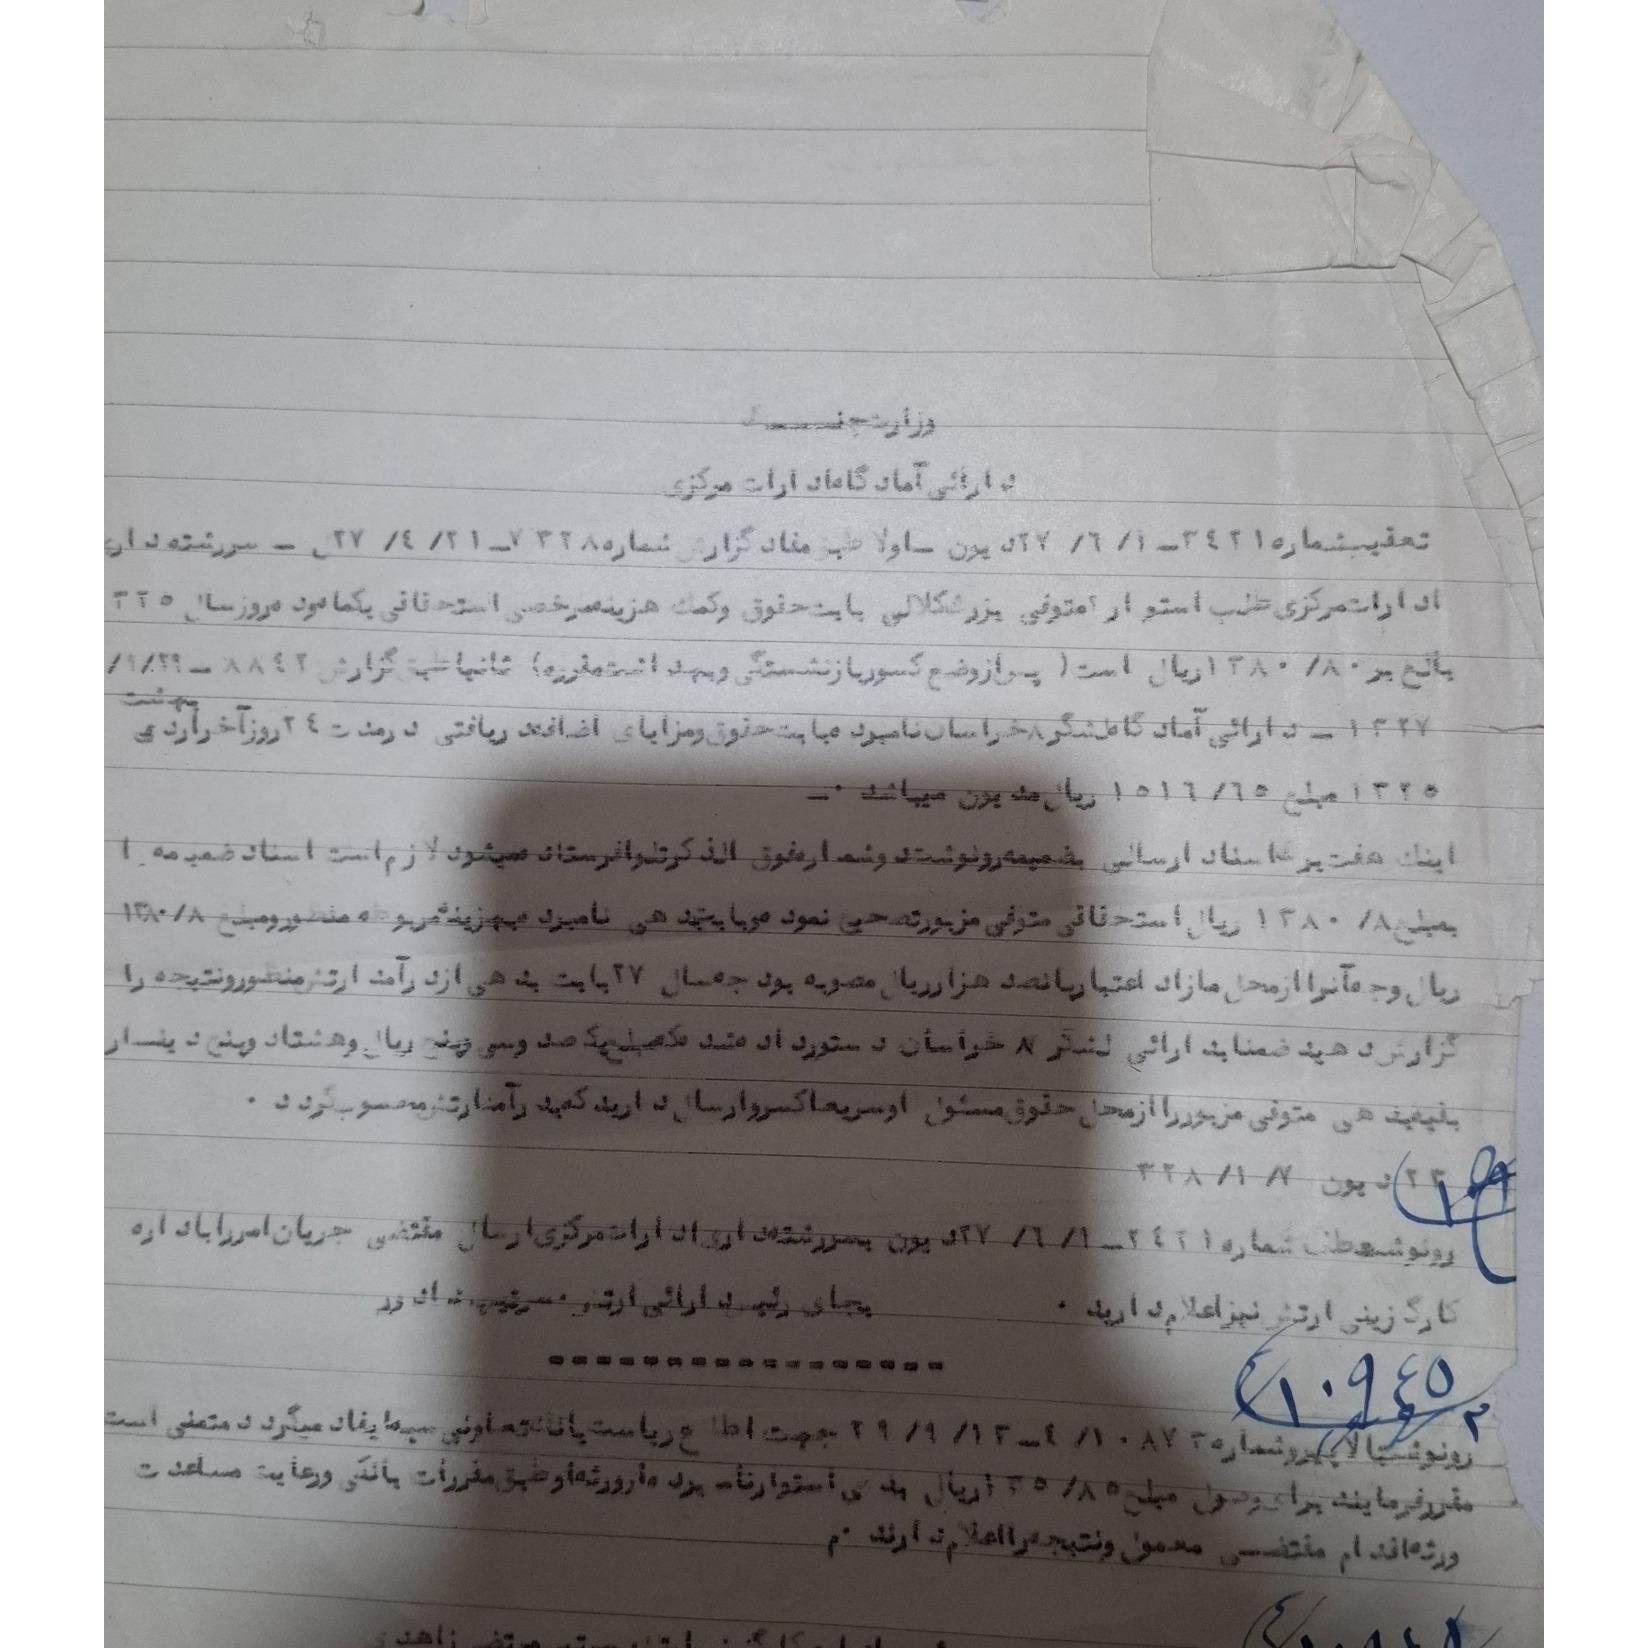 وزارت جنـــــگ
دارائی آمادگاه ادارات مرکزی
تعقیب شماره ۳۴۲۱ــ۱/ ۶/ ۲۷ دیون ــ اولا طبق مفاد گزارش شماره ۷۳۲۸ــ۲۱/ ۴/ ۲۷ ــ سررشته داری
ادارات مرکزی طلب استوار ۲ متوفی بزرگ کلالی بابت حقوق و کمک هزینه مرخصی استحقاقی یکماه و دو روز سال ۳۲۵
بالغ بر ۸۰/ ۱۳۸۰ ریال است ( پس از وضع کسور بازنشستگی و بهداشت مقرره) ثانیا طبق گزارش ۸۸۴۲ ــ ۲۹/ ۹/
۱۳۲۷ ــ دارائی آمادگاه لشگر ۸ خراسان نامبرده بابت حقوق و مزایای اضافه دریافتی در مدت ۲۴ روز آخر اردی بهشت
۱۳۲۵ مبلغ ۶۵/ ۱۵۱۶ ریال مدیون میباشد ۰ــ
اینک هفت برگ اسناد ارسالی بضمیمه رونوشت دو شماره فوق الذکر تلوا فرستاده میشود لازم است اسناد ضمیمه را
بمبلغ ۸/ ۱۳۸۰ ریال استحقاقی متوفی مزبور تصحیح نموده و بابت بدهی نامبرده بهزینه مربوطه منظور و مبلغ ۸/ ۱۳۸۰
ریال وجه آنرا از محل مازاد اعتبار پانصد هزار ریال مصوبه بودجه سال ۲۷ بابت بدهی از درآمد ارتش منظور و نتیجه را
گزارش دهید ضمنا بدارائی لشگر ۸ خراسان دستور داده شد که مبلغ یکصد و سی و پنج ریال و هشتاد و پنج دینـار
بقیه بدهی متوفی مزبور را از محل حقوق مسئول او سریعا کسر و ارسال دارید که بدرآمد ارتش محسوب گردد ۰
۲۲ دیون ۷/ ۱/ ۳۲۸
رونوشت عطف شماره ۲۴۲۱ــ۱/ ۶/ ۲۷ دیون بسررشته داری ادارات مرکزی ارسال مقتضی جریان امر را باداره
کارگزینی ارتش نیز اعلام دارید ۰
بجای رئیس دارائی ارتش ۰ سرتیپ دادور
۱۰۹۴۵
رونوشت بالا پیرو شماره ۱۰۸۷۳/ ۴ــ۱۳/ ۹/ ۲۹ جهت اطلاع ریاست بانک تعاونی سپه ایفاد میگردد متمنی است
مقرر فرمایند برای وصول مبلغ ۸۵/ ۱۳۵ ریال بدهی استوار نامبرده از ورثه او طبق مقررات بانکی و رعایت مساعدت
ورثه اقدام مقتضـــی معمول و نتیجه را اعلام دارند ۰م